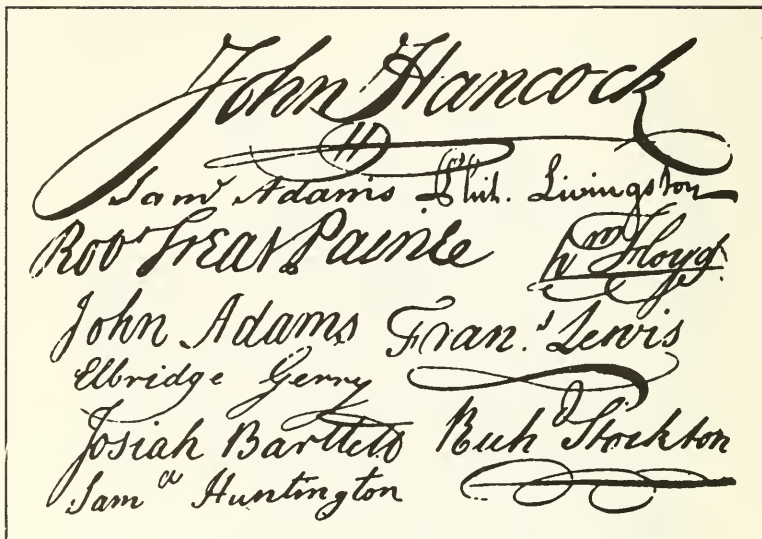 John Hancock
Saml Adams Phil. Livingston
Robt Treat Paine Wm Floyd
John Adams Frans. Lewis
Elbridge Gerry
Josiah Bartlett Richd Stockton
Saml Huntington